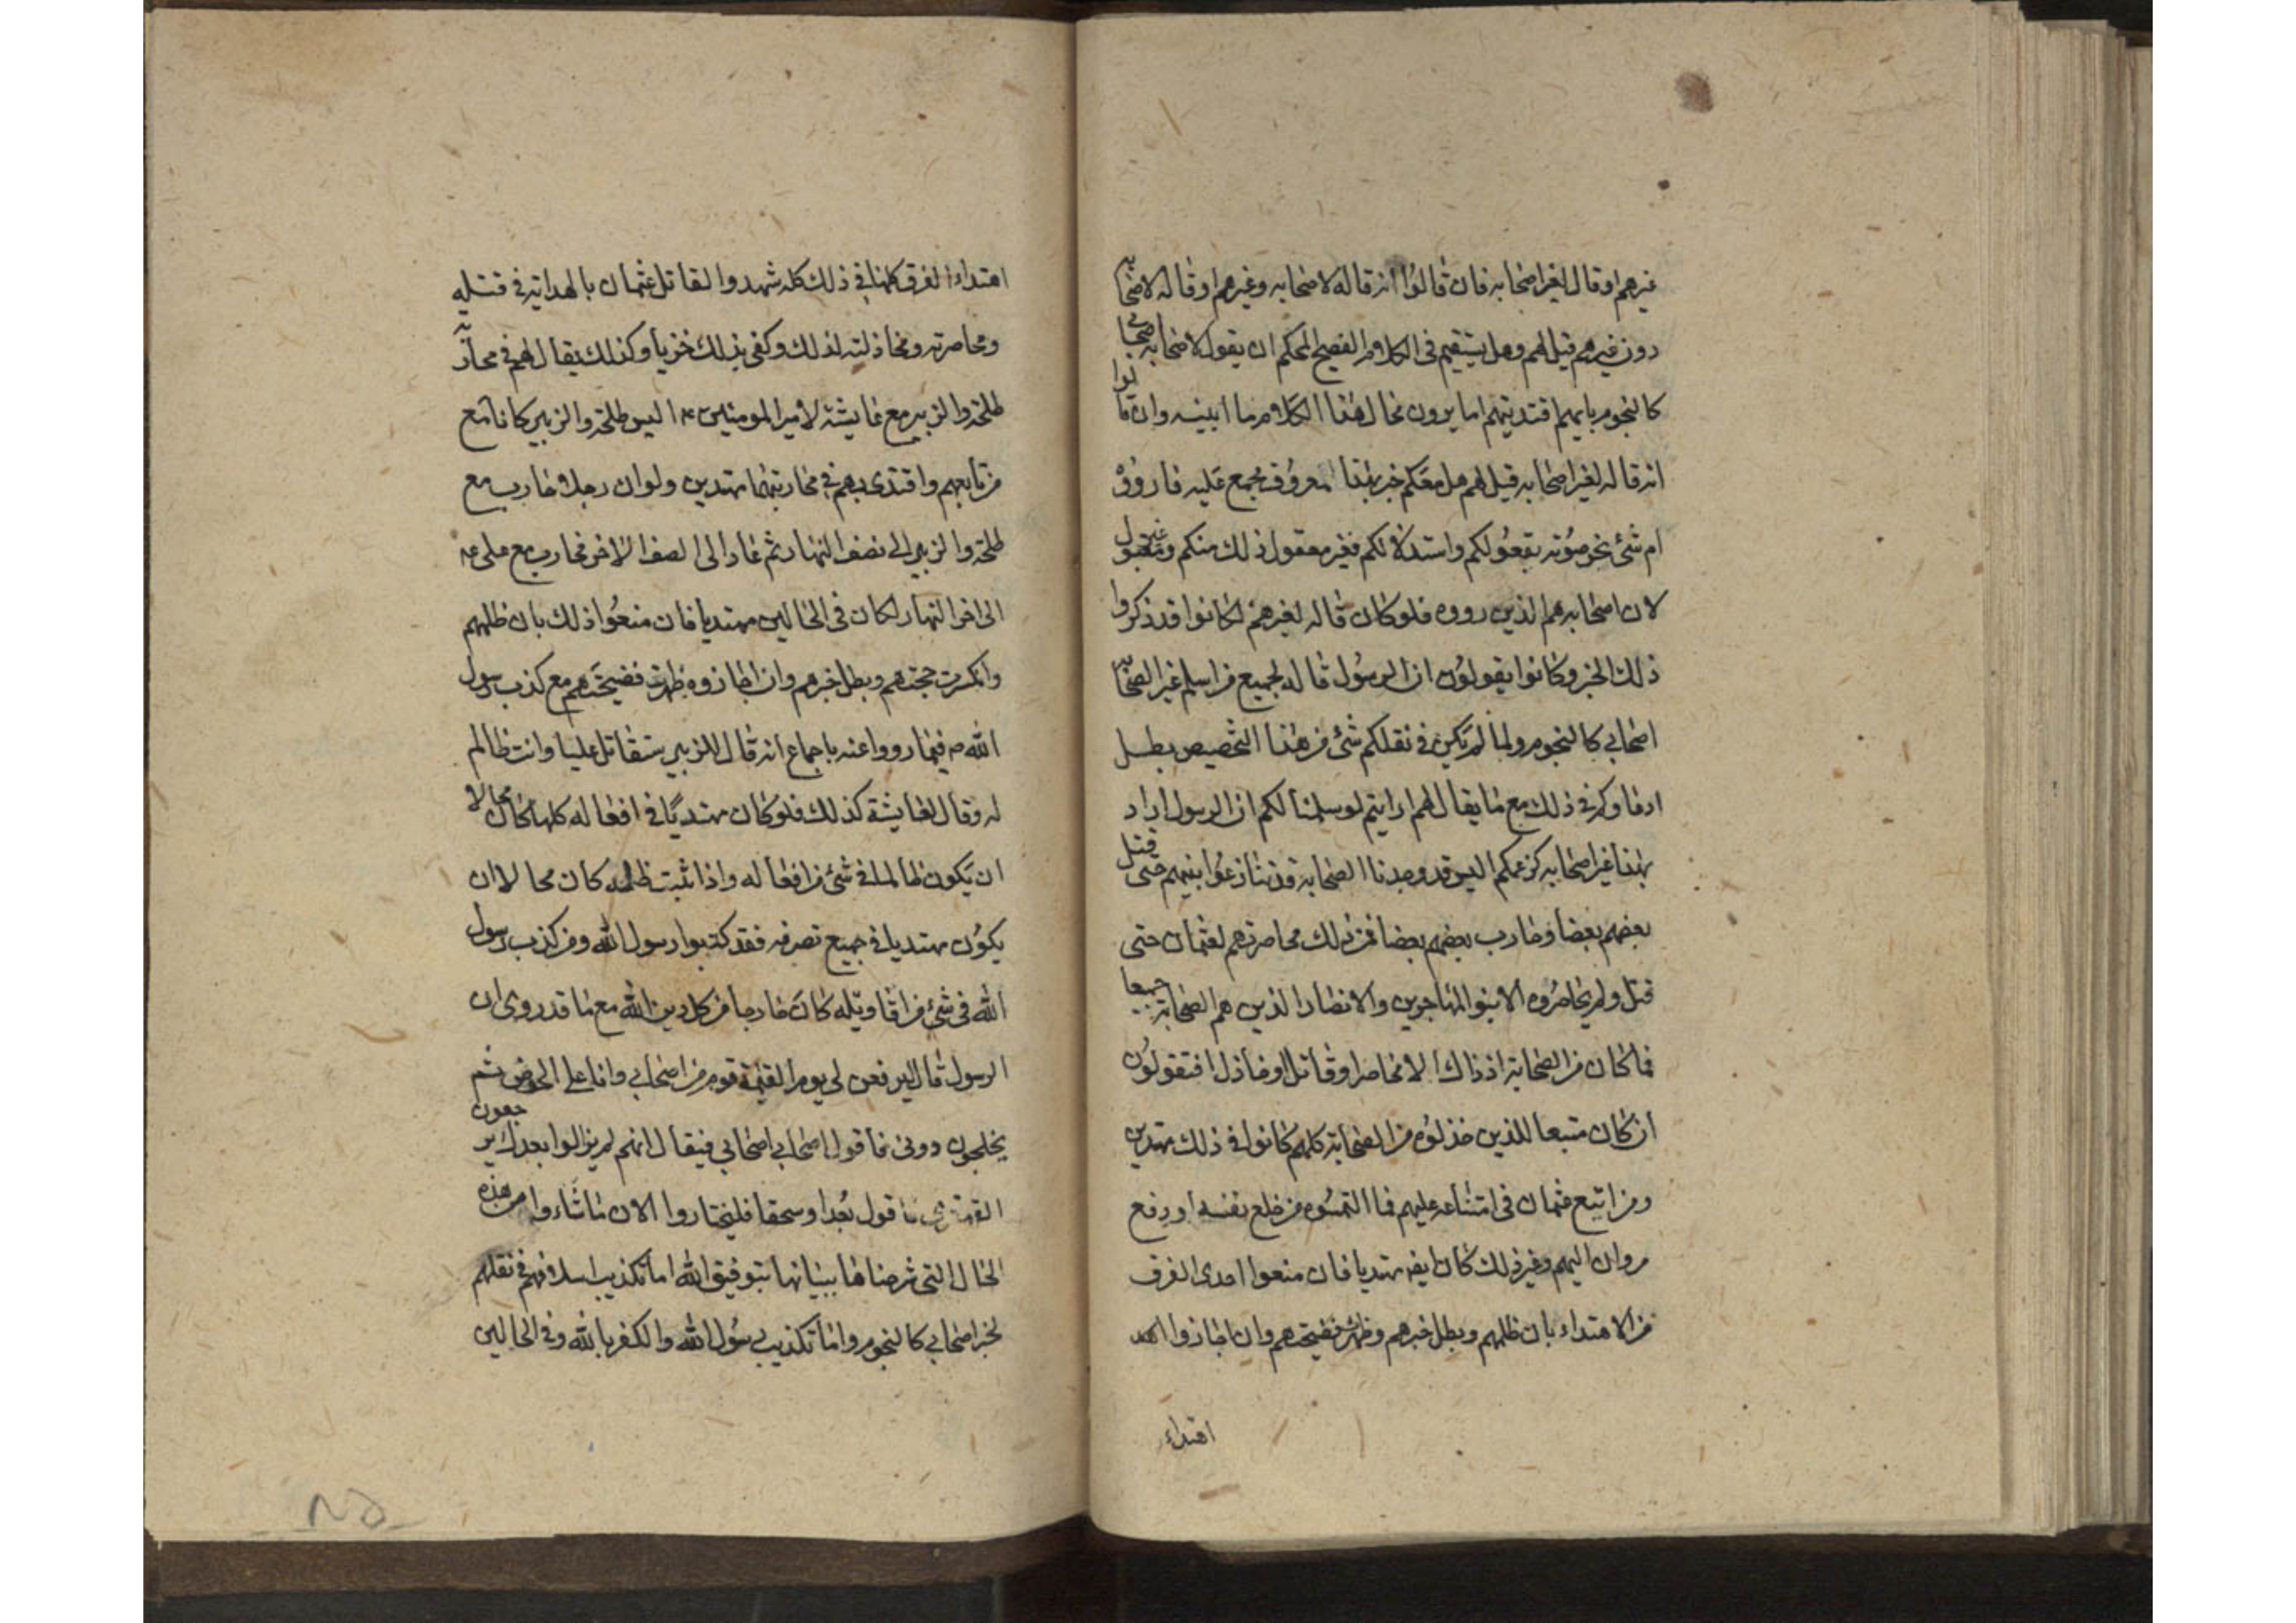 غيرهم او قال لغير اصحابه فان قالوا انه قاله لاصحابه وغيرهم او قاله لاصحابه
دون غيرهم قيل لهم وهل يستقيم فى الكلام الفصيح المحكم ان يقول لاصحابه اصحابى
كالنجوم بايهم اقتديتم اهتديتم اما يرون محال هذا الكلام ما ابينه وان قالوا
انه قاله لغير اصحابه قيل لهم هل معكم خبر بهذا معروف مجمع عليه فاروؤه
ام شئ تخرصوته بقعولكم واستدلالكم فغير معقول ذلك منكم وغير مقبول
لان اصحابه هم الذين رووه فلو كان قاله لغيرهم لكانوا قد ذكروا
ذلك الخبر وكانوا يقولون ان الرسول قاله لجميع من اسلم غير الصحابه
اصحابى كالنجوم ولما لم يكن فى نقلكم شئ من هذا التخصيص بطل
ادعاوكم فى ذلك مع ما يقال لهم ارايتم لو سلمنا لكم ان الرسول اراد
بهذا غير اصحابه كزعمكم اليس قد وجدنا الصحابه قد تنازعوا بينهم حتى قتل
بعضهم بعضا وحارب بعضهم بعضا فمن ذلك محاصرتهم لعثمان حتى
قتل ولم يحاصروه الا بنو المهاجرين والانصار الذين هم الصحابة جميعا
فما كان من الصحابة اذ ذاك الا محاصر او قاتل او خاذل افتقولون
ان كان متبعا للذين خذلوه من الصحابة كلهم كانوا فى ذلك مهتدين
ومن اتبع عثمان فى امتناعه عليهم فما التمسوه من خلع نفسه او دفع
مروان اليهم وغير ذلك كان ايضه مهتديا فان منعوا احدى الفرق
من الاهتداء بان ظلمهم وبطل خبرهم وظهرت فضيحتهم وان اجازوا لهم
اهتداء
اهتداء الفرق كلها فى ذلك كله شهدوا لقاتل عثمان بالهداية فى قتله
ومحاصرته ومخاذلته لذلك وكفى بذلك خزيا وكذلك يقال لهم فى محاربة
طلحة والزبير مع عايشة لامير المومنين ع اليس طلحة والزبير كانا مع
من تابعهم واقتدى بهم فى محاربتهما مهتدين ولو ان رجلا حارب مع
طلحة والزبير الى نصف النهار ثم عاد الى الصف الاخر فحارب مع على ع
الى اخر النهار لكان فى الحالين مهتديا فان منعوا ذلك بان ظلمهم
وانكسرت حجتهم وبطل خبرهم وان اجازوه ظهرت فضيحتهم مع كذب رسول
الله ص فيما رووا عنه باجماع انه قال للزبير ستقاتل عليا وانت ظالم
له وقال لعايشة كذلك فلو كان مهتديًا فى افعاله كلها لكان محالا
ان يكون ظالما فى شئ من افعاله واذا ثبت ظلمه كان محالا ان
يكون مهتديا فى جميع تصرفه فقد كذبوا رسول الله ومن كذب رسول
الله فى شئ من اقاويله كان خارجا من كل دين الله مع ما قد روى ان
الرسول قال ليرفعن لى يوم القيمة قوم من اصحابى وانا على الحوض ثم
يختلجون دونى فاقول اصحابى اصحابى فيقال انهم لم يزالوا بعدك يرجعون
القهقرى فاقول بُعدا وسحقا فليختاروا الان ما شاءوا من هذه
الحال التى شرحناها ببيانها بتوفيق الله اما تكذيب اسلافهم فى نقلهم
لخبر اصحابى كالنجوم واما تكذيب رسول الله والكفر بالله وفى الحالين